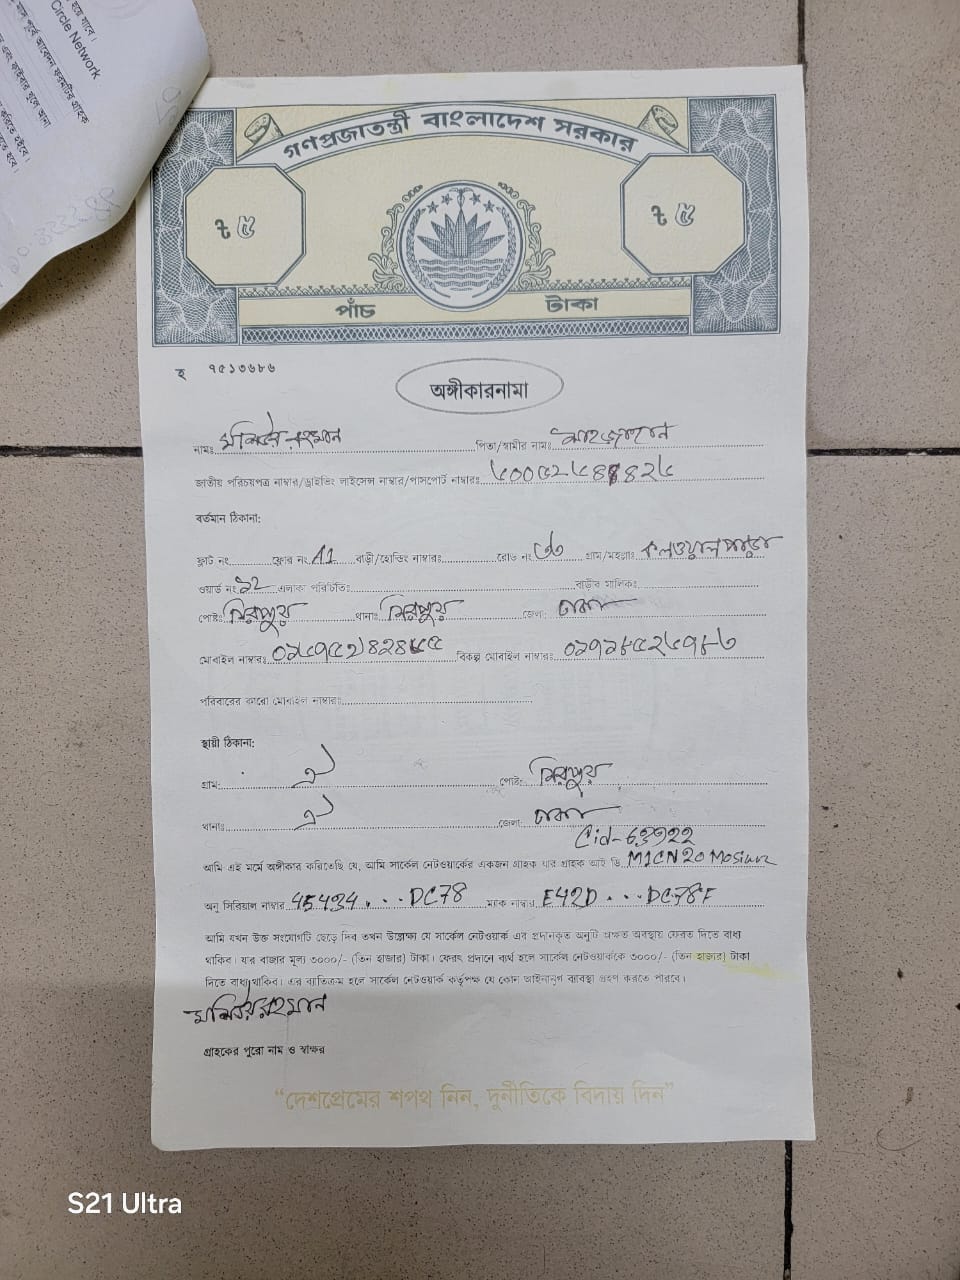 হয়ে যাবে।
Circle Network
গণপ্রজাতন্ত্রী বাংলাদেশ সরকার
ট ৫ ট ৫
পাঁচ টাকা
হ ৭৫১৩৬৮৬
অঙ্গীকারনামা
নামঃ মশিউর রহমান পিতা/স্বামীর নামঃ শাহজাহান
জাতীয় পরিচয়পত্র নাম্বার/ড্রাইভিং লাইসেন্স নাম্বার/পাসপোর্ট নাম্বারঃ
বর্তমান ঠিকানা:
ফ্লাট নং ফ্লোর নং A1 বাড়ী/হোল্ডিং নাম্বারঃ রোড নং গ্রাম/মহল্লাঃ কলওয়ালাপাড়া
ওয়ার্ড নং ১২ এলাকা পরিচিতিঃ বাড়ীর মালিকঃ
পোষ্টঃ মিরপুর থানাঃ মিরপুর জেলা: ঢাকা
মোবাইল নাম্বারঃ বিকল্প মোবাইল নাম্বারঃ
পরিবারের কারো মোবাইল নাম্বারঃ
স্থায়ী ঠিকানা:
গ্রাম: ঐ পোষ্ট: মিরপুর
থানাঃ ঐ জেলা: ঢাকা
Cid-63922
আমি এই মর্মে অঙ্গীকার করিতেছি যে, আমি সার্কেল নেটওয়ার্কের একজন গ্রাহক যার গ্রাহক আই ডি M1CN20
অনু সিরিয়াল নাম্বার 45434...DC78 ম্যাক নাম্বার E42D...DC78F
আমি যখন উক্ত সংযোগটি ছেড়ে দিব তখন উল্লেক্ষ্য যে সার্কেল নেটওয়ার্ক এর প্রদানকৃত অনুটি অক্ষত অবস্থায় ফেরত দিতে বাধ্য
থাকিব। যার বাজার মূল্য ৩০০০/- (তিন হাজার) টাকা। ফেরৎ প্রদানে ব্যর্থ হলে সার্কেল নেটওয়ার্ককে ৩০০০/- (তিন হাজার) টাকা
দিতে বাধ্য থাকিব। এর ব্যতিক্রম হলে সার্কেল নেটওয়ার্ক কর্তৃপক্ষ যে কোন আইনানুগ ব্যবস্থা গ্রহণ করতে পারবে।
মশিউর রহমান
গ্রাহকের পুরো নাম ও স্বাক্ষর
“দেশপ্রেমের শপথ নিন, দুর্নীতিকে বিদায় দিন”
S21 Ultra